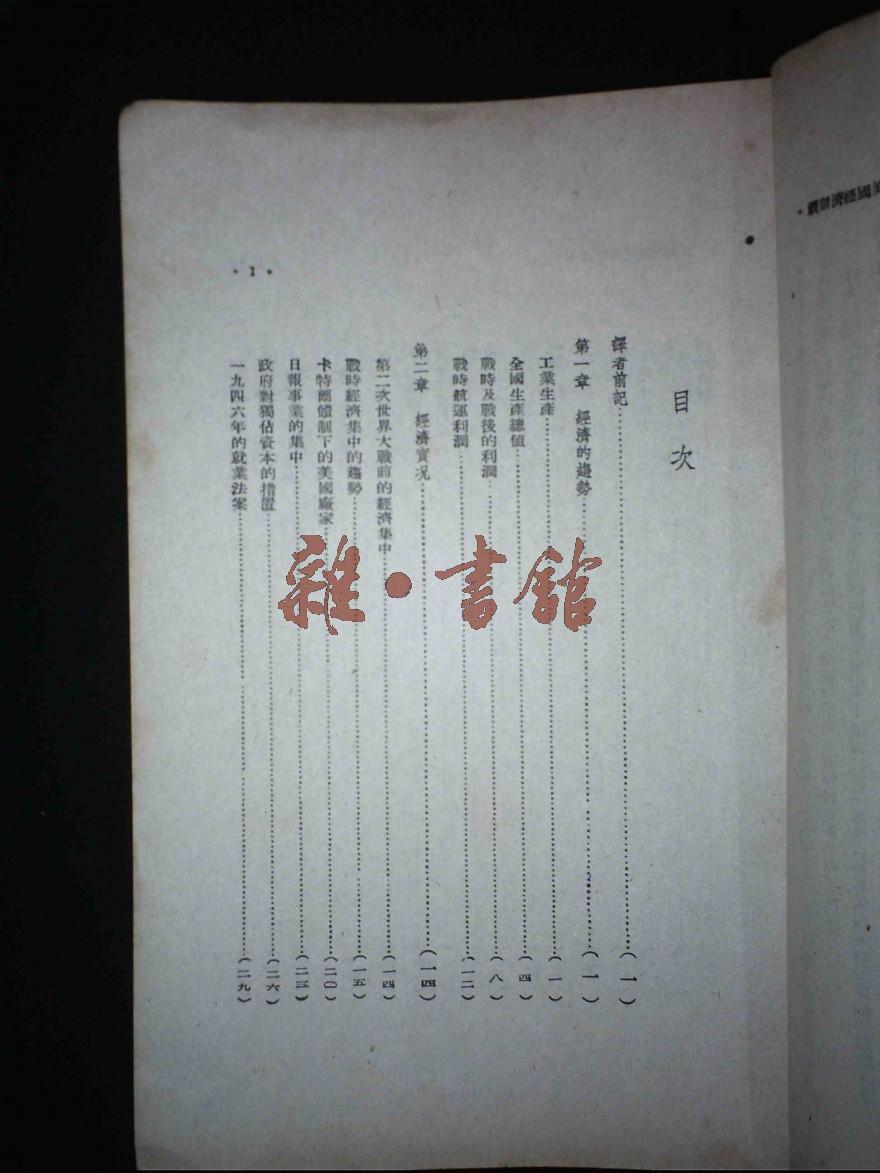 美國經濟剖視・
目次
譯者前記……(一)
第一章 經濟的趨勢……(一)
工業生產……(一)
全國生產總値……(四)
戰時及戰後的利潤……(八)
戰時航運利潤……(一二)
第二章 經濟實况……(一四)
第二次世界大戰前的經濟集中……(一四)
戰時經濟集中的趨勢……(一五)
卡特爾體制下的美國廠家……(二〇)
日報事業的集中……(二三)
政府對獨佔資本的措置……(二六)
一九四六年的就業法案……(二九)
・1・
雜・書館